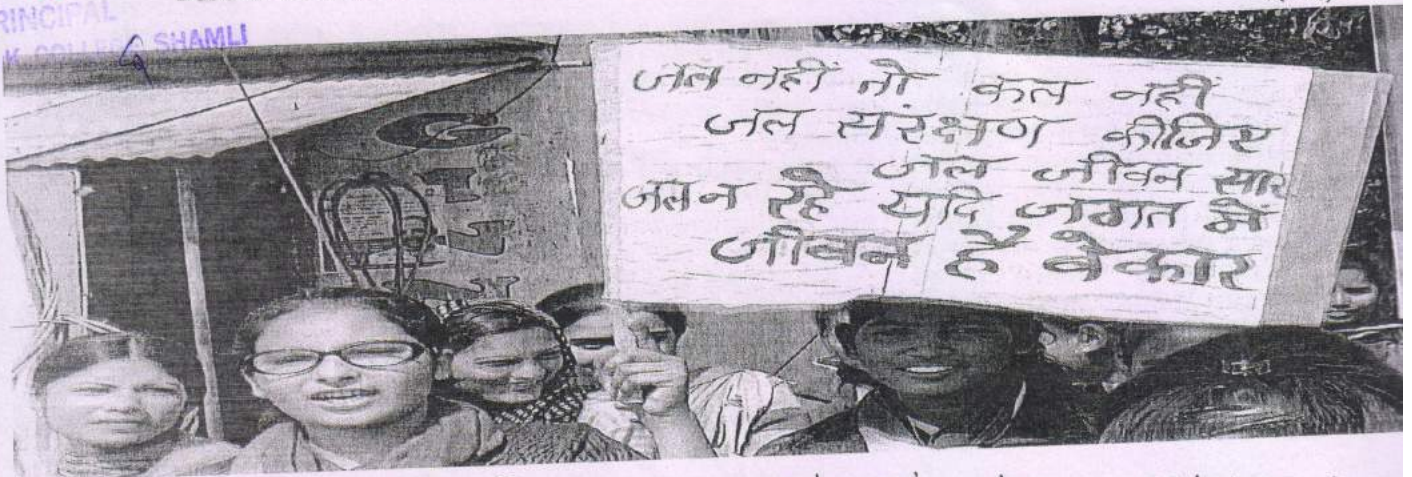 PRINCIPAL
COLLEGE SHAMLI
जल नहीं तो कल नहीं
जल संरक्षण कीजिए
जल जीवन सार
जल न रहे यदि जगत में
जीवन है बेकार